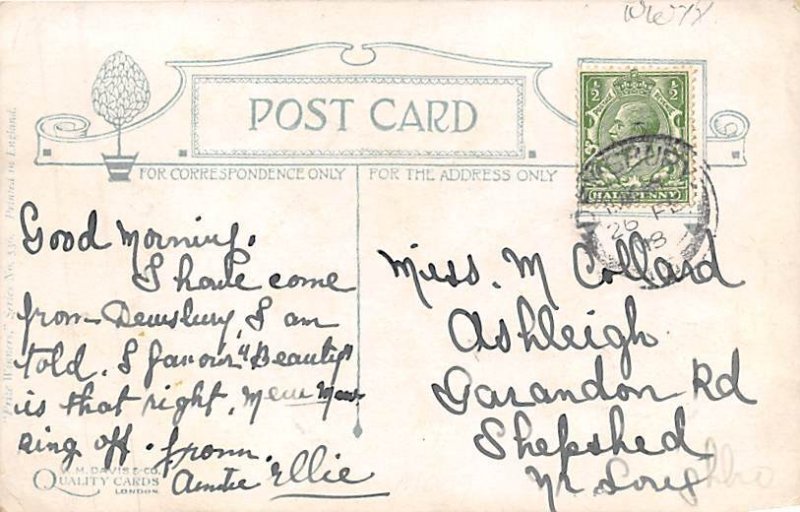 POST CARD
½ ½
HALFPENNY
DEWSBURY
26 FE
18
FOR CORRESPONDENCE ONLY
FOR THE ADDRESS ONLY
"Prize Winners," Series No. 536. Printed in England.
Good Morning.
I have come
from Dewsbury, I am
told. I favour "Beauty"
is that right, Mew Mew
ring off. from.
Auntie Ellie
W. M. DAVIS & CO.
QUALITY CARDS
LONDON
Miss. M Collard
Ashleigh
Garandon Rd
Shepshed
Nr Loughbro